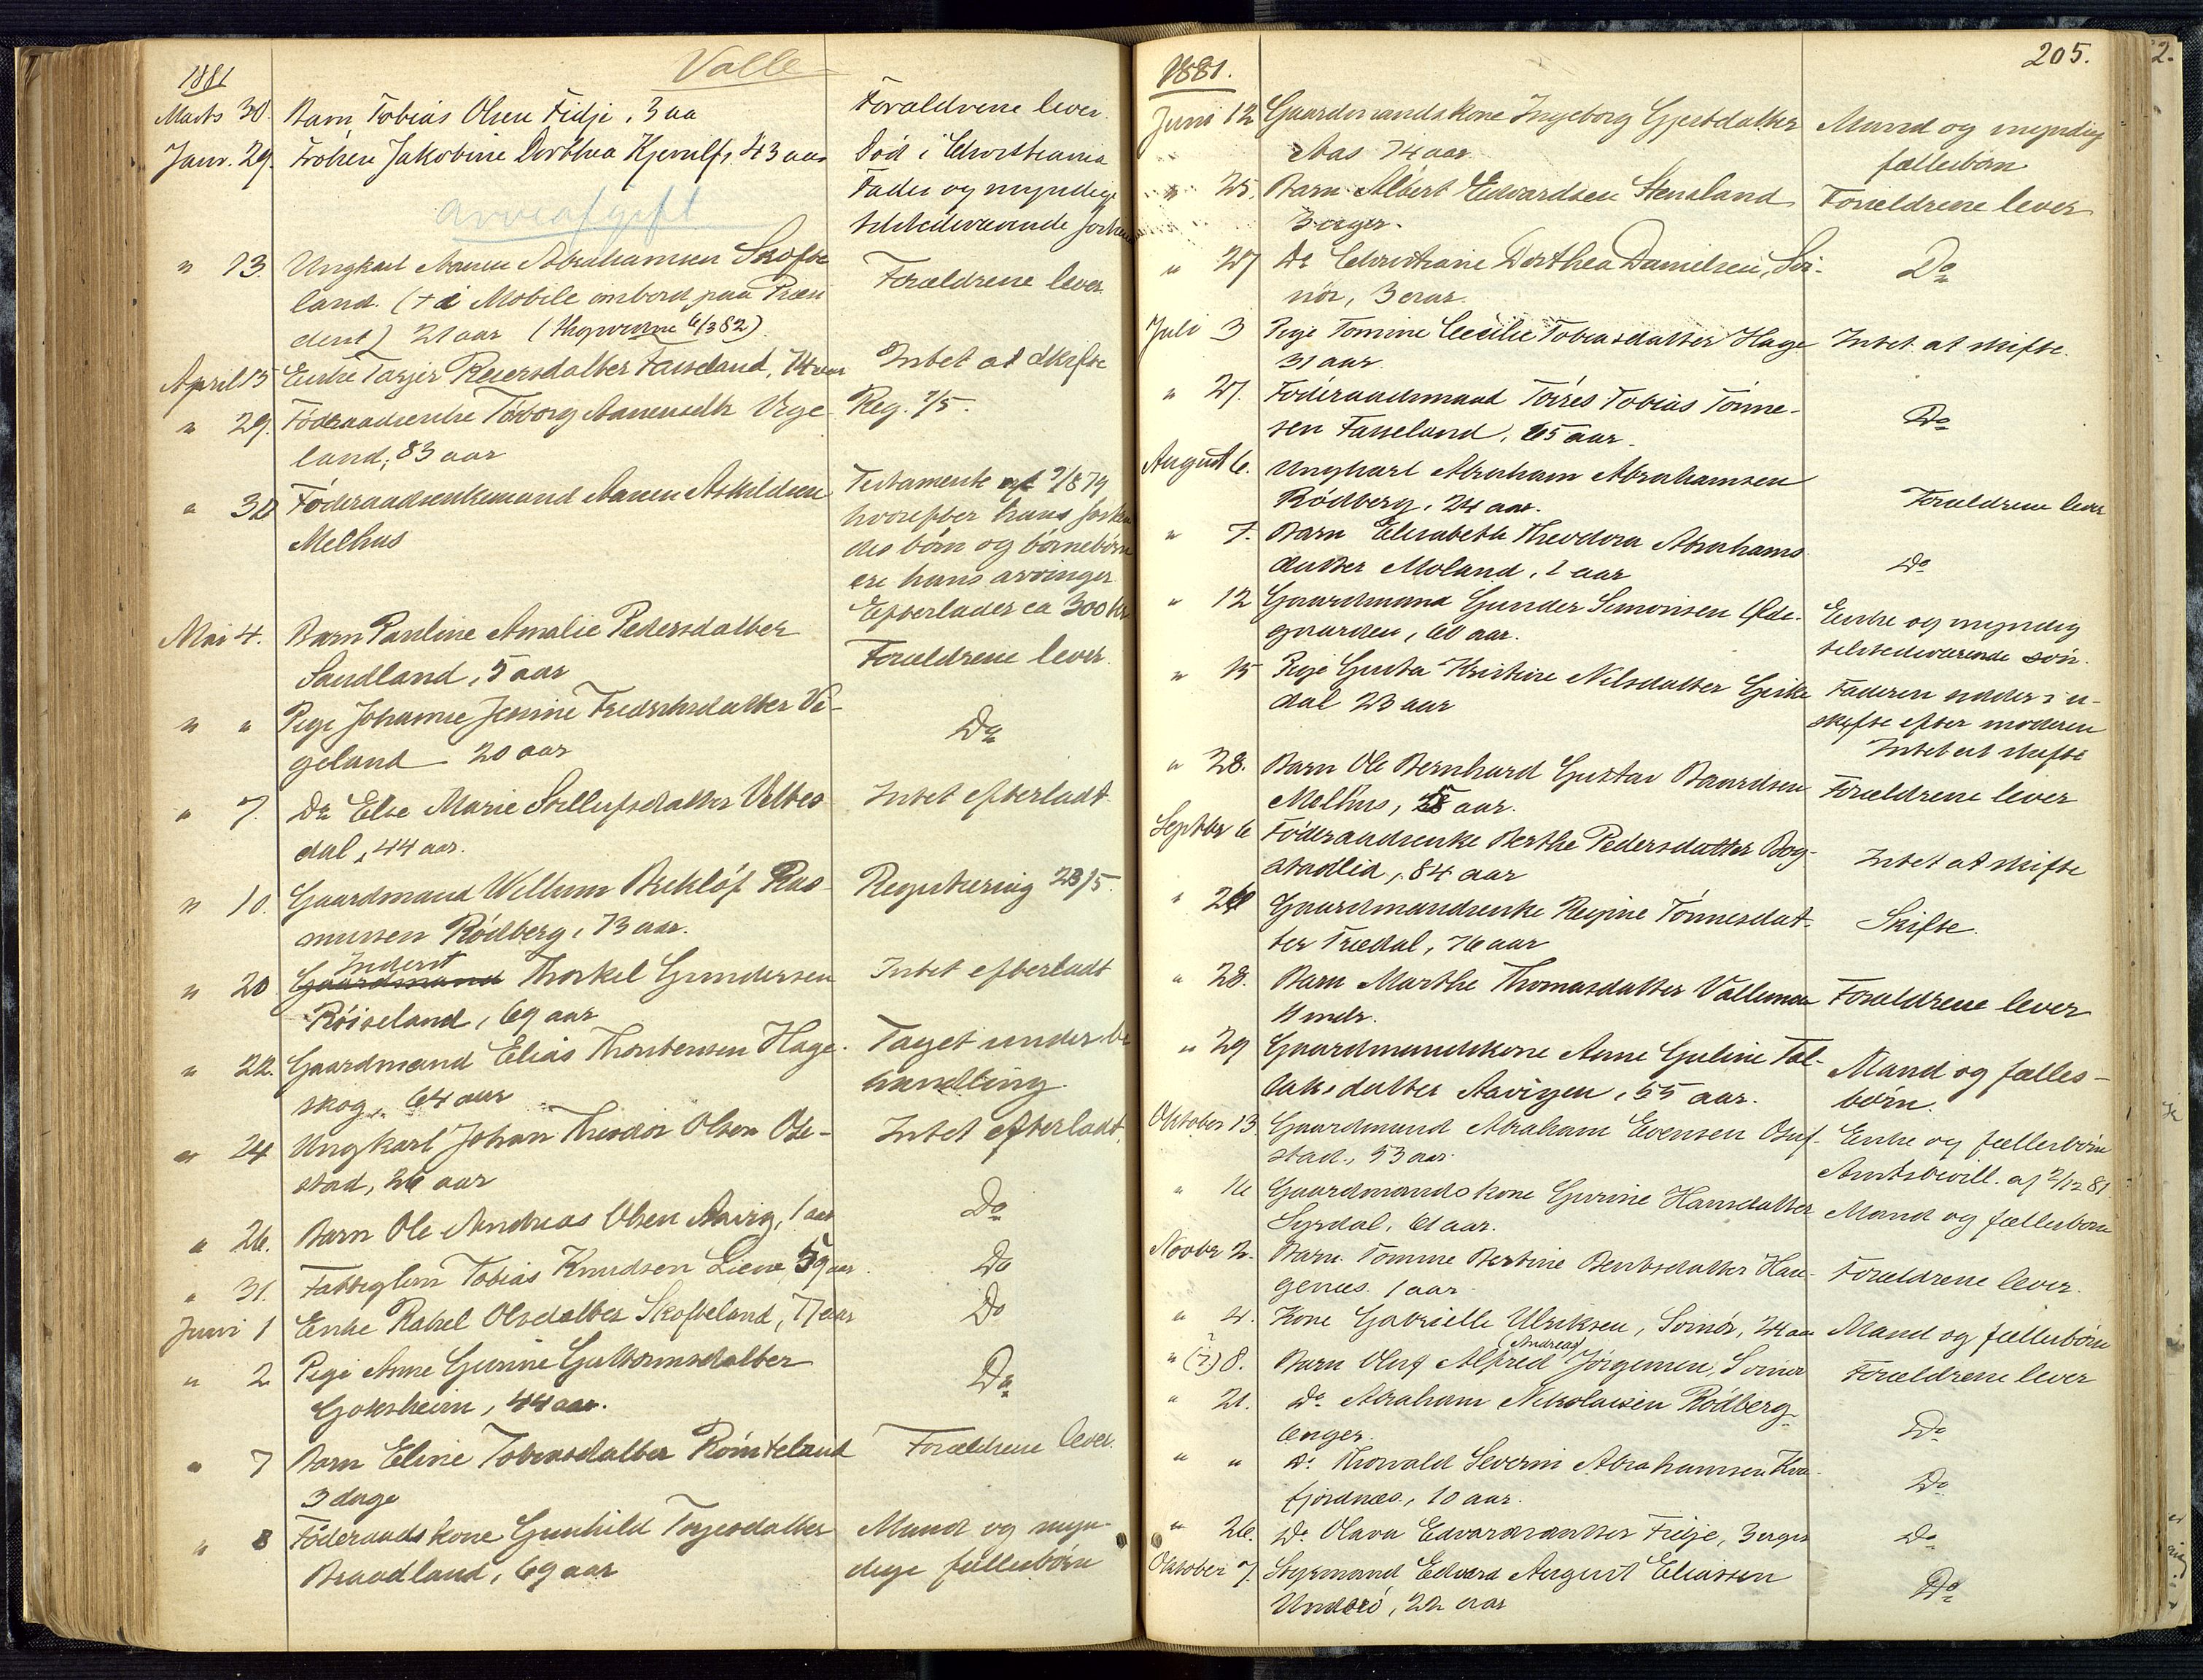 Valle
1881
Marts 30. Barn Tobias Olsen Fidje, 3 aa Forældrene lever.
Janr. 29. Frøken Jakobine Dorthea Kjerulf, 43 aar Død i Christiania
Fader og myndige
arveafgift
tilstedeværende
" 13. Ungkarl Aanen Abrahamsen Skofte
land. (+ i Mobile ombord paa Præsi Forældrene lever.
dent) 21 aar (6/3 82)
April 15 Enke Tarjer Reiersdatter Faseland, 74 aar Intet at skifte
" 29. Føderaadsenke Tøborg Aanensdtr Vige Reg. 7/5.
land, 83 aar
" 30 Føderaadsenkemand Aanen Askildsen Testamente af 9/8 79
Melhus hvorefter hans
des børn og børnebørn
ere hans arvinger
Efterlader ca 300 kr
Mai 4. Barn Pauline Amalie Pedersdatter
Sandland, 5 aar Forældrene lever.
" " Pige Johanne Jensine Fredriksdatter Vi-
geland 20 aar Do
" 7. Do Else Marie Sellufsdatter Valbes Intet efterladt
dal, 44 aar.
" 10. Gaardmand Willum Rus- Registrering 23/5.
mussen Rødberg, 73 aar.
Inderst
" 20 Gaardmand Thorkel Gundersen Intet efterladt
Røiseland, 69 aar
" 22. Gaardmand Elias Thorbensen Hage- Taget under be
skog, 64 aar handling.
" 24 Ungkarl Johan Theodor Olsen Ose- Intet efterladt.
stad, 26 aar
" 26. Barn Ole Andreas Olsen Aavig, 1 aar Do
" 31. Fattiglem Tobias Knudsen Liene, 59 aar. Do
Juni 1 Enke Rakel Olsdatter Skofteland, 77 aar Do
" 2 Pige Anne Gurine Guttormsdatter
Goksheim, 44 aar. Do
" 7 Barn Eline Tobiasdatter Rømteland Forældrene lever.
3 dage
" 8 Føderaadskone Gunhild Torjesdatter Mand og myn-
Braadland, 69 aar dige fællesbørn
1881. 205.
Juni 12 Gaardmandskone Ingeborg Gjertsdatter Mand og myndig
Aas 74 aar. fællesbørn
" 25. Barn Albert Edvardsen Stensland Forældrene lever
3 uger.
" 27 Do Christiane Dorthea Danielsen, Svi-
nør, 3 aar. Do
Juli 3 Pige Tomine Cecilie Tobiasdatter Hage Intet at skifte.
31 aar.
" 27. Føderaadsmand Tørres Tobias Tønne-
sen Faseland, 65 aar. Do
August 6. Ungkarl Abraham Abrahamsen
Rødberg, 24 aar. Forældrene lever
" 7. Barn Elisabeth Theodora Abrahams
datter Moland, 2 aar Do
" 12 Gaardmand Gunder Simonsen Øde- Enke og myndig
gaarden, 60 aar. tilstedeværende søn.
" 15 Pige Gusta Kristine Nilsdatter Geike Faderen sidder i u-
dal 23 aar skifte efter moderen
Intet at skifte
" 28. Barn Ole Bernhard Gustav Baardsen
Melhus, aar. Forældrene lever
Septbr 6 Føderaadsenke Berthe Pedersdatter Bog-
stadlid, 84 aar Intet at skifte
" Gaardmandsenke Regine Tønnesdat-
ter Trædal, 76 aar Skifte.
" 28. Barn Marthe Thomasdatter Vallemoen Forældrene lever
11 mdr.
" 29 Gaardmandskone Anne Guline Tol- Mand og fælles-
laksdatter Aavigen, 55 aar. børn.
Oktober 13 Gaardmand Abraham Evensen Osuf- Enke og fællesbørn
stad, 53 aar. Amtsbevill. af 2/12 81.
" 16 Gaardmandskone Gurine Hansdatter Mand og fællesbørn
Syrdal, 61 aar.
Novbr 2. Barn Tomine Bertine Berntsdatter Hau-
genes. 1 aar Forældrene lever.
" 4. Kone Gabrielle Ulriksen, Svinør, 24 aar Mand og fællesbørn
(Andreas)
" (?) 8. Barn Oluf Alfred Jørgensen, Svinør Forældrene lever
" 21. Do Abraham Nikolaisen Rødberg
6 uger. Do
" " Do Thorvald Severin Abrahamsen Kva-
fjordnæs, 10 aar. Do
" 26. Do Olava Edvardsdatter Fidje, 3 uger Do
Oktober 7. Styrmand Edvard August Eliassen
Underø, 22 aar Do